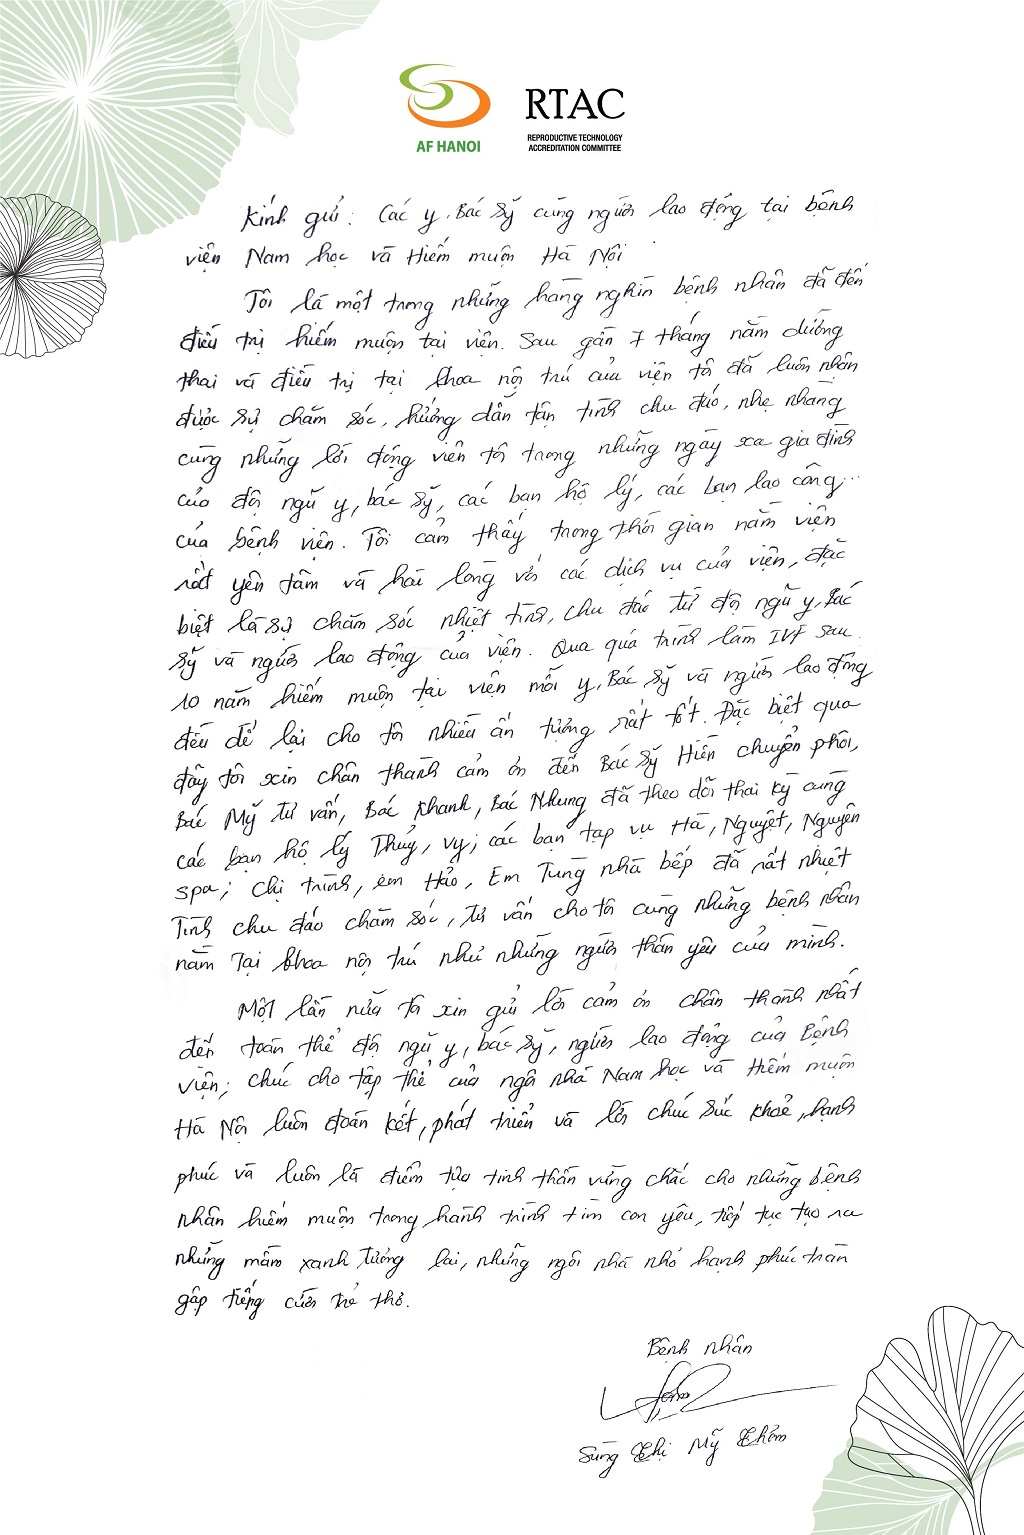 AF HANOI
RTAC
REPRODUCTIVE TECHNOLOGY
ACCREDITATION COMMITTEE
Kính gửi: Các y, Bác sỹ cùng người lao động tại bệnh
viện Nam học và Hiếm muộn Hà Nội.
Tôi là một trong những hàng nghìn bệnh nhân đã đến
điều trị hiếm muộn tại viện. Sau gần 7 tháng nằm dưỡng
thai và điều trị tại khoa nội trú của viện tôi đã luôn nhận
được sự chăm sóc, hướng dẫn tận tình chu đáo, nhẹ nhàng
cùng những lời động viên tôi trong những ngày xa gia đình
của đội ngũ y, bác sỹ, các bạn hộ lý, các bạn lao công...
của bệnh viện. Tôi cảm thấy trong thời gian nằm viện
rất yên tâm và hài lòng với các dịch vụ của viện, đặc
biệt là sự chăm sóc nhiệt tình, chu đáo từ đội ngũ y, Bác
sỹ và người lao động của viện. Qua quá trình làm IVF sau
10 năm hiếm muộn tại viện mỗi y, Bác sỹ và người lao động
đều để lại cho tôi nhiều ấn tượng rất tốt. Đặc biệt qua
đây tôi xin chân thành cảm ơn đến Bác sỹ Hiền chuyển phôi,
Bác Mỹ tư vấn, Bác Khanh, Bác Nhung đã theo dõi thai kỳ cùng
các bạn hộ lý Thủy, Vy; các bạn tạp vụ Hà, Nguyệt, Nguyên
spa; chị trình, em Hảo, Em Tùng nhà bếp đã rất nhiệt
Tình chu đáo chăm sóc, tư vấn cho tôi cùng những bệnh nhân
nằm Tại khoa nội trú như những người thân yêu của mình.
Một lần nữa tôi xin gửi lời cảm ơn chân thành nhất
đến toàn thể đội ngũ y, bác sỹ, người lao động của Bệnh
viện; chúc cho tập thể của ngôi nhà Nam học và Hiếm muộn
Hà Nội luôn đoàn kết, phát triển và lời chúc sức khoẻ, hạnh
phúc và luôn là điểm tựa tinh thần vững chắc cho những bệnh
nhân hiếm muộn trong hành trình tìm con yêu, tiếp tục tạo ra
những mầm xanh tương lai, những ngôi nhà nhỏ hạnh phúc tràn
gập tiếng cười trẻ thơ.
Bệnh nhân
Sùng Thị Mỹ Thơm